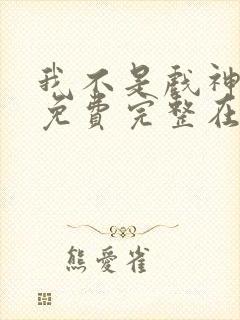 我不是戲神
免費完整在
熊愛雀